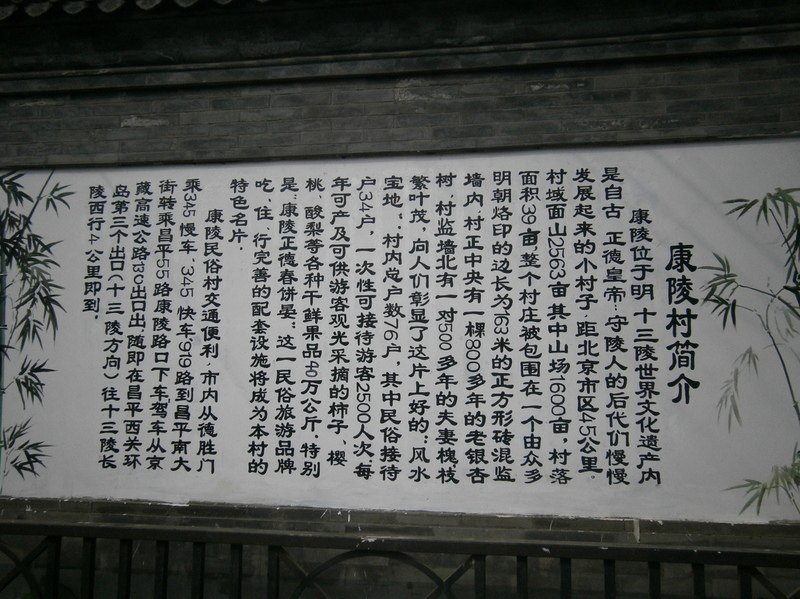 康陵村简介
康陵位于明 十三陵世界文化遗产内
是自古 正德皇帝·守陵人的后代们慢慢
发展起来的小村子，距北京市区45公里。
村域面山2563亩其中山场1600亩，村落
面积39亩，整个村庄被包围在一个由众多
明朝烙印的边长为163米的正方形砖混监
墙内，村正中央有一棵800多年的老银杏
树，村监墙北有一对500多年的夫妻槐枝
繁叶茂，向人们彰显了这片上好的“风水
宝地”，村内总户数76户，其中民俗接待
户34户，一次性可接待游客2500人次，每
年可产及可供游客观光采摘的柿子、樱
桃、酸梨等各种干鲜果品40万公斤，特别
是“康陵正德春饼宴”这一民俗旅游品牌
吃、住、行完善的配套设施将成为本村的
特色名片。
康陵民俗村交通便利，市内从德胜门
乘345慢车、345快车、919路到昌平南大
街转乘昌平55路康陵路口下车驾车从京
藏高速公路13C出口出，随即在昌平西关环
岛第三个出口（十三陵方向）往十三陵长
陵西行4公里即到。